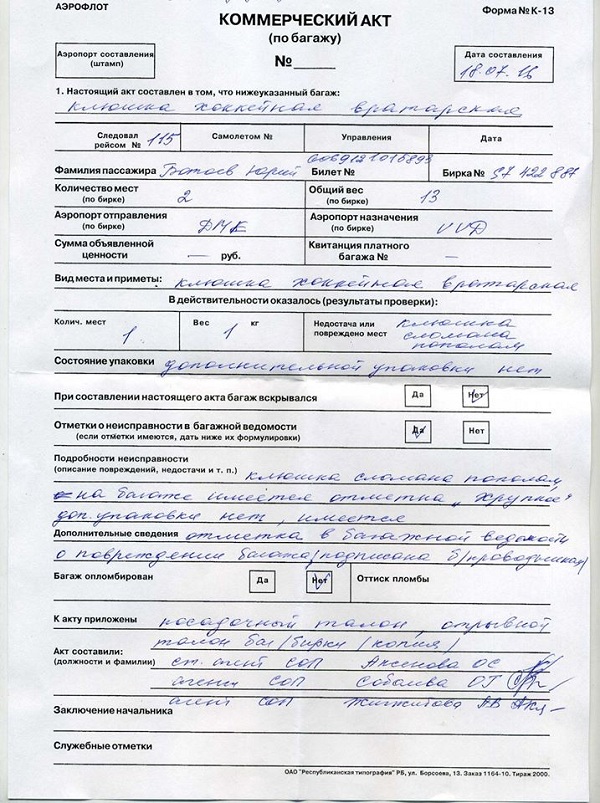 АЭРОФЛОТ
Форма № К-13
КОММЕРЧЕСКИЙ АКТ
(по багажу)
№
Аэропорт составления
(штамп)
Дата составления
18.07.16
1. Настоящий акт составлен в том, что нижеуказанный багаж:
клюшка хоккейная вратарская
Следовал рейсом № 115 Самолетом № Управления Дата
Фамилия пассажира Юрий Билет № Бирка № 422 887
Количество мест (по бирке) 2 Общий вес (по бирке) 13
Аэропорт отправления (по бирке) ДМЕ Аэропорт назначения (по бирке) VVD
Сумма объявленной ценности — руб. Квитанция платного багажа № —
Вид места и приметы: клюшка хоккейная вратарская
В действительности оказалось (результаты проверки):
Колич. мест 1 Вес 1 кг Недостача или повреждено мест клюшка сломана пополам
Состояние упаковки дополнительной упаковки нет
При составлении настоящего акта багаж вскрывался Да Нет
Отметки о неисправности в багажной ведомости Да Нет
(если отметки имеются, дать ниже их формулировки)
Подробности неисправности
(описание повреждений, недостачи и т. п.) клюшка сломана пополам
на багаже имеется отметка „Хрупкое"
доп. упаковки нет, имеется
Дополнительные сведения отметка в багажной ведомости
о повреждении багажа/подписана б/проводником/
Багаж опломбирован Да Нет Оттиск пломбы
К акту приложены посадочный талон, отрывной
талон баг/бирки/копия/
Акт составили:
(должности и фамилии) ст. агент СОП Аксенова ОС
агент СОП ОГ
агент СОП АВ
Заключение начальника
Служебные отметки
ОАО "Республиканская типография" РБ, ул. Борсоева, 13. Заказ 1164-10. Тираж 2000.